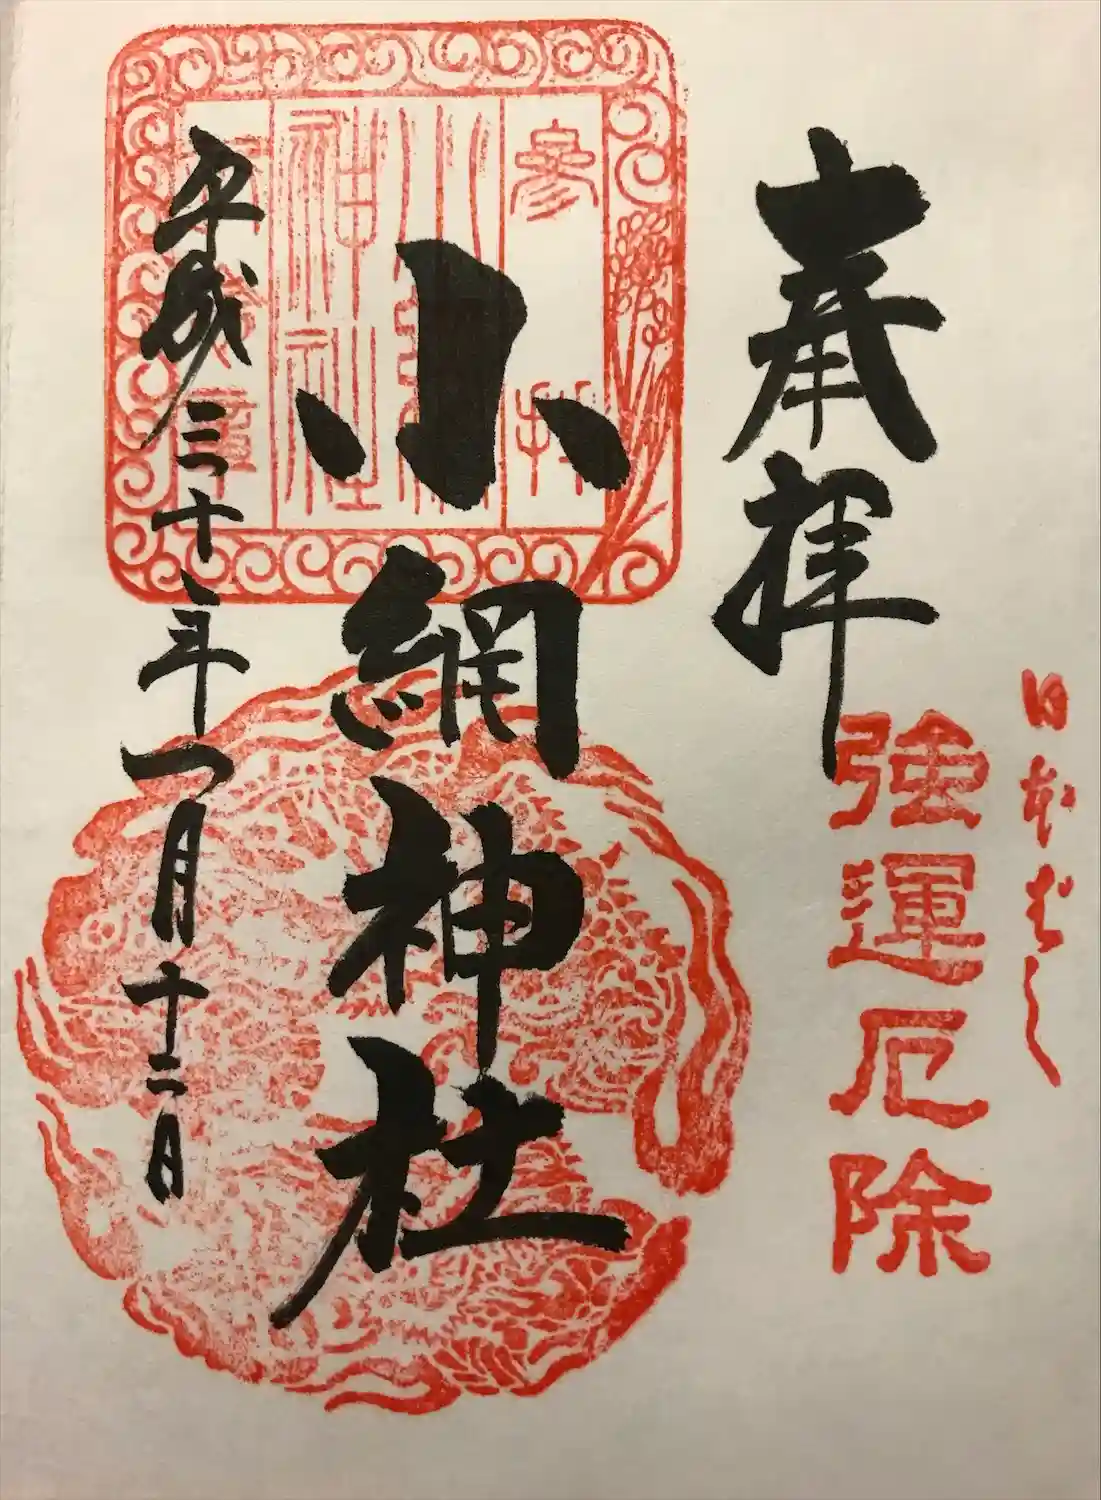 日本はし
強運厄除
奉拝
參拝
小網
神社
小網神社
平成三十年一月十二日